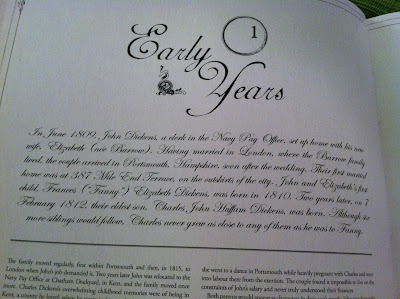 Early
1
Years
In June 1809, John Dickens, a clerk in the Navy Pay Office, set up home with his new
wife, Elizabeth (née Barrow). Having married in London, where the Barrow family
lived, the couple arrived in Portsmouth, Hampshire, soon after the wedding. Their first marital
home was at 387 Mile End Terrace, on the outskirts of the city. John and Elizabeth's first
child, Frances ("Fanny") Elizabeth Dickens, was born in 1810. Two years later, on 7
February 1812, their eldest son, Charles John Huffam Dickens, was born. Although six
more siblings would follow, Charles never grew as close to any of them as he was to Fanny.
The family moved regularly, first within Portsmouth and then, in 1815, to
London when John's job demanded it. Two years later John was relocated to the
Navy Pay Office at Chatham Dockyard, in Kent, and the family moved once
more. Charles Dickens's overwhelming childhood memories were of being in
she went to a dance in Portsmouth while heavily pregnant with Charles and went
into labour there from the exertion. The couple found it impossible to live
constraints of John's salary and never truly understood their finances.